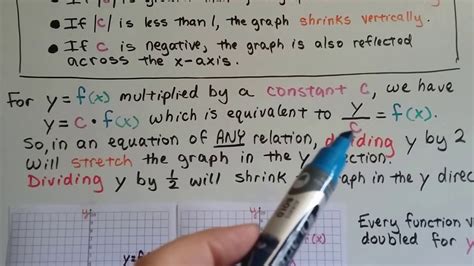 • If |c| is less than 1, the graph shrinks vertically.
• If c is negative, the graph is also reflected
across the x-axis.
For y = f(x) multiplied by a constant c, we have
y = c • f(x) which is equivalent to y/c = f(x).
So, in an equation of ANY relation, dividing y by 2
will stretch the graph in the y direction.
Dividing y by 1/2 will shrink graph in the y direc
y
y
f(x)
Every function v
doubled for y